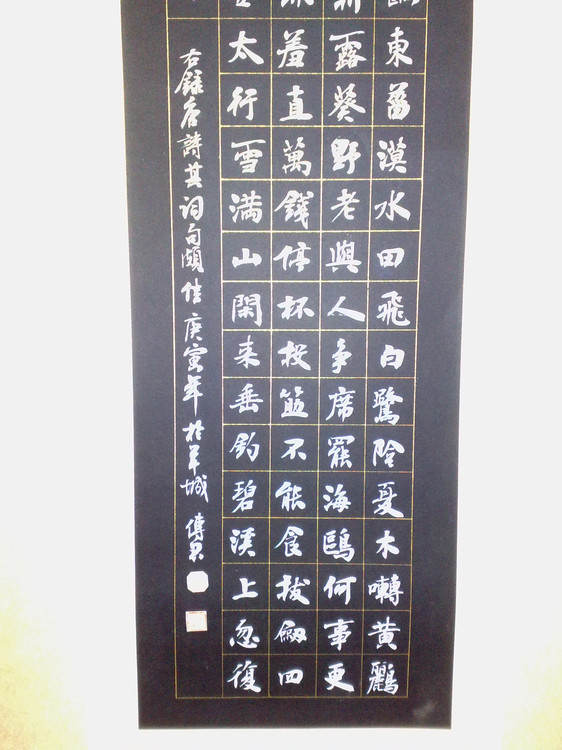 東菑漠水田飛白鷺陰夏木囀黃鸝
折露葵野老與人爭席罷海鷗何事更
羞直萬錢停杯投筯不能食拔劍四
太行雪滿山閑来垂釣碧溪上忽復
右錄唐詩其詞句頗佳庚寅年於羊城